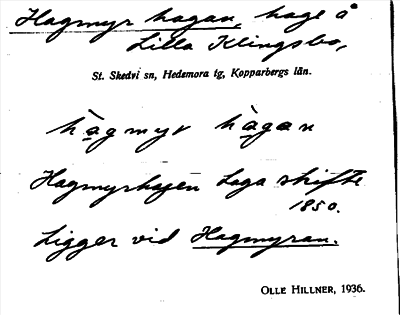 Hagmyrhagan, hage å
Lilla Klingsbo,
St. Skedvi sn, Hedemora tg, Kopparbergs län.
hàgmyr hàgan
Hagmyrhagen Laga skifte
1850.
Ligger vid Hagmyran.
OLLE HILLNER, 1936.